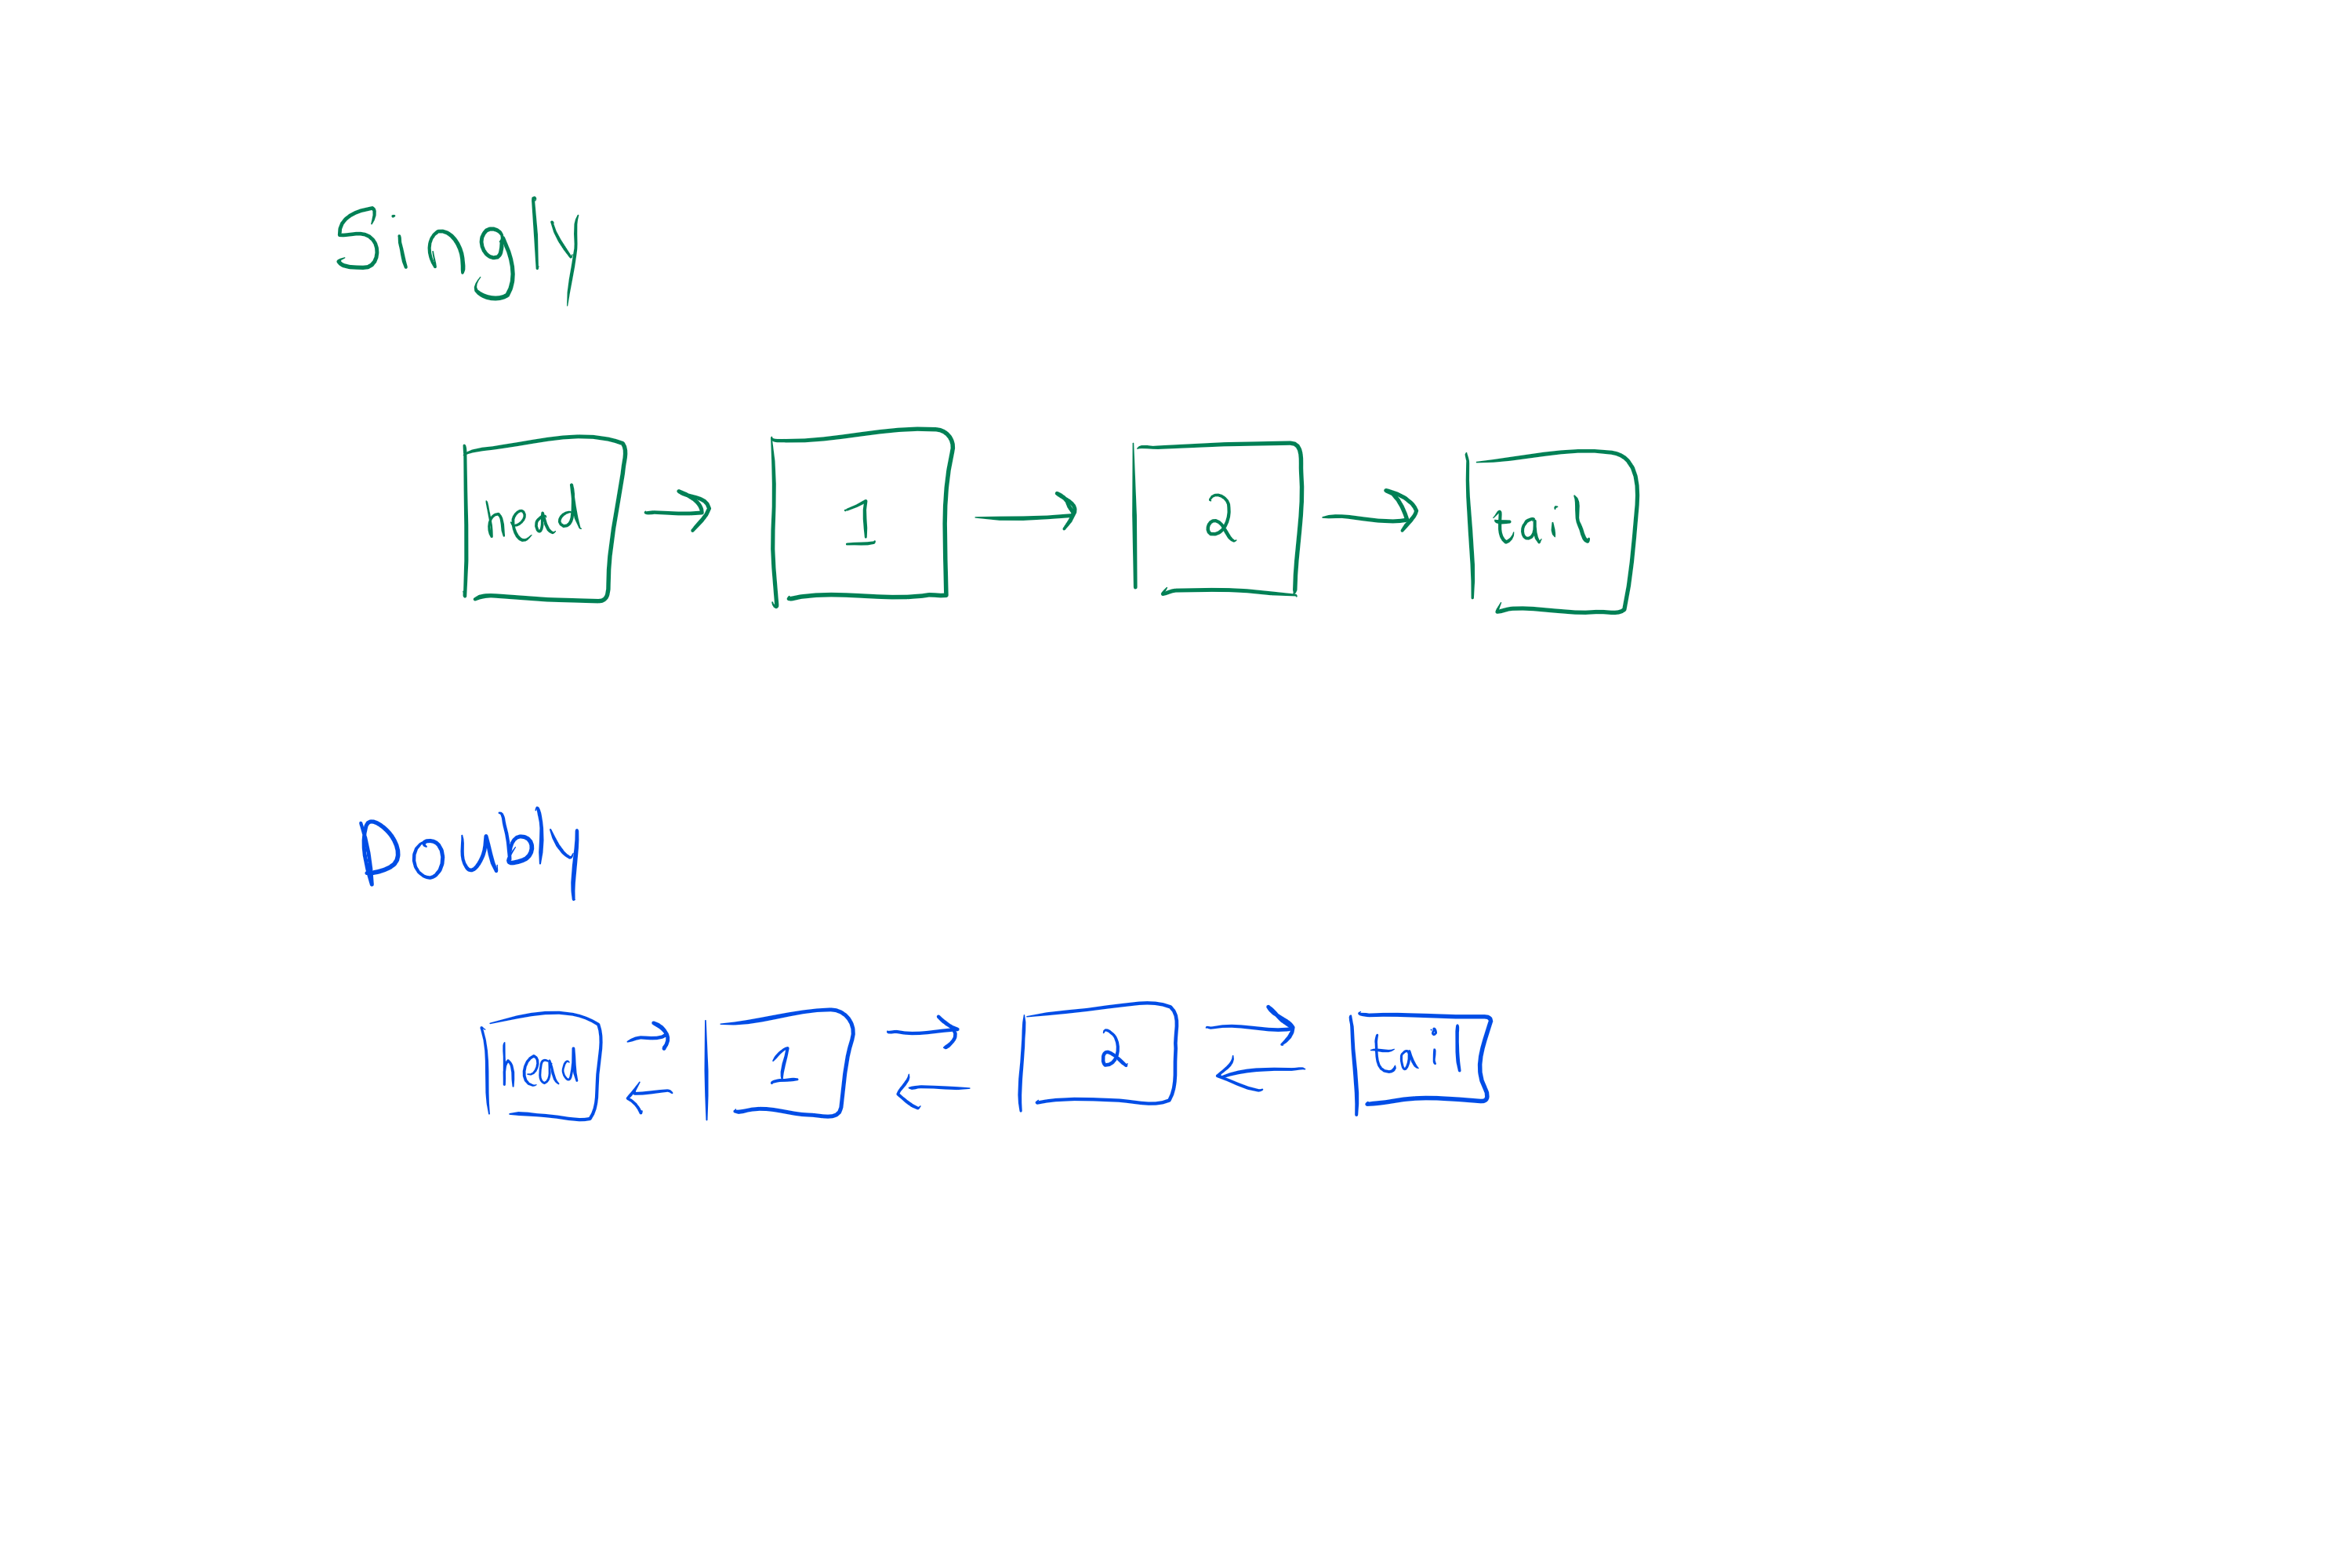 Singly
head 1 2 tail
Doubly
head 1 2 tail